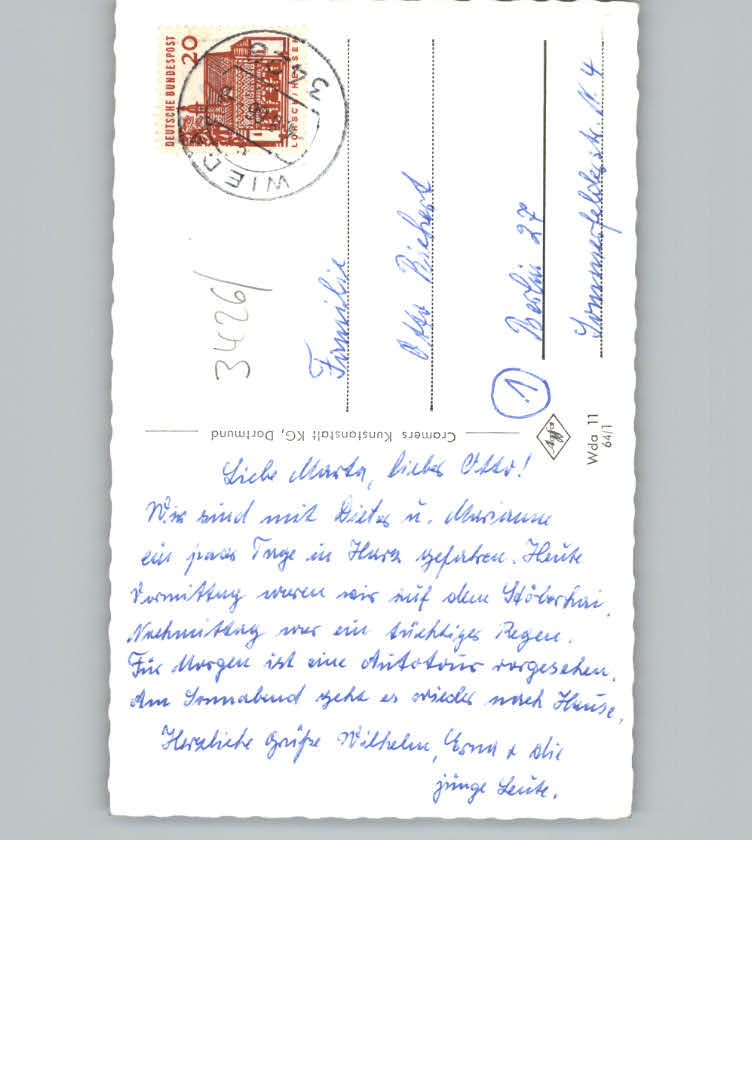 DEUTSCHE BUNDESPOST
20
LORSCH/HESSEN
WIED
3426/
Familie
Otto Richert
1
Berlin 27
Sommerfelderstr. N. 4
Cramers Kunstanstalt KG, Dortmund
Wda 11
64/1
Liebe Marta, lieber Otto!
Wir sind mit Dieter u. Marianne
ein paar Tage in Harz gefahren. Heute
Vormittag waren wir auf dem Stöberhai.
Nachmittag war ein tüchtiger Regen.
Für Morgen ist eine Autotour vorgesehen.
Am Sonnabend geht es wieder nach Hause.
Herzliche Grüße Wilhelm, Erna + die
junge Leute.